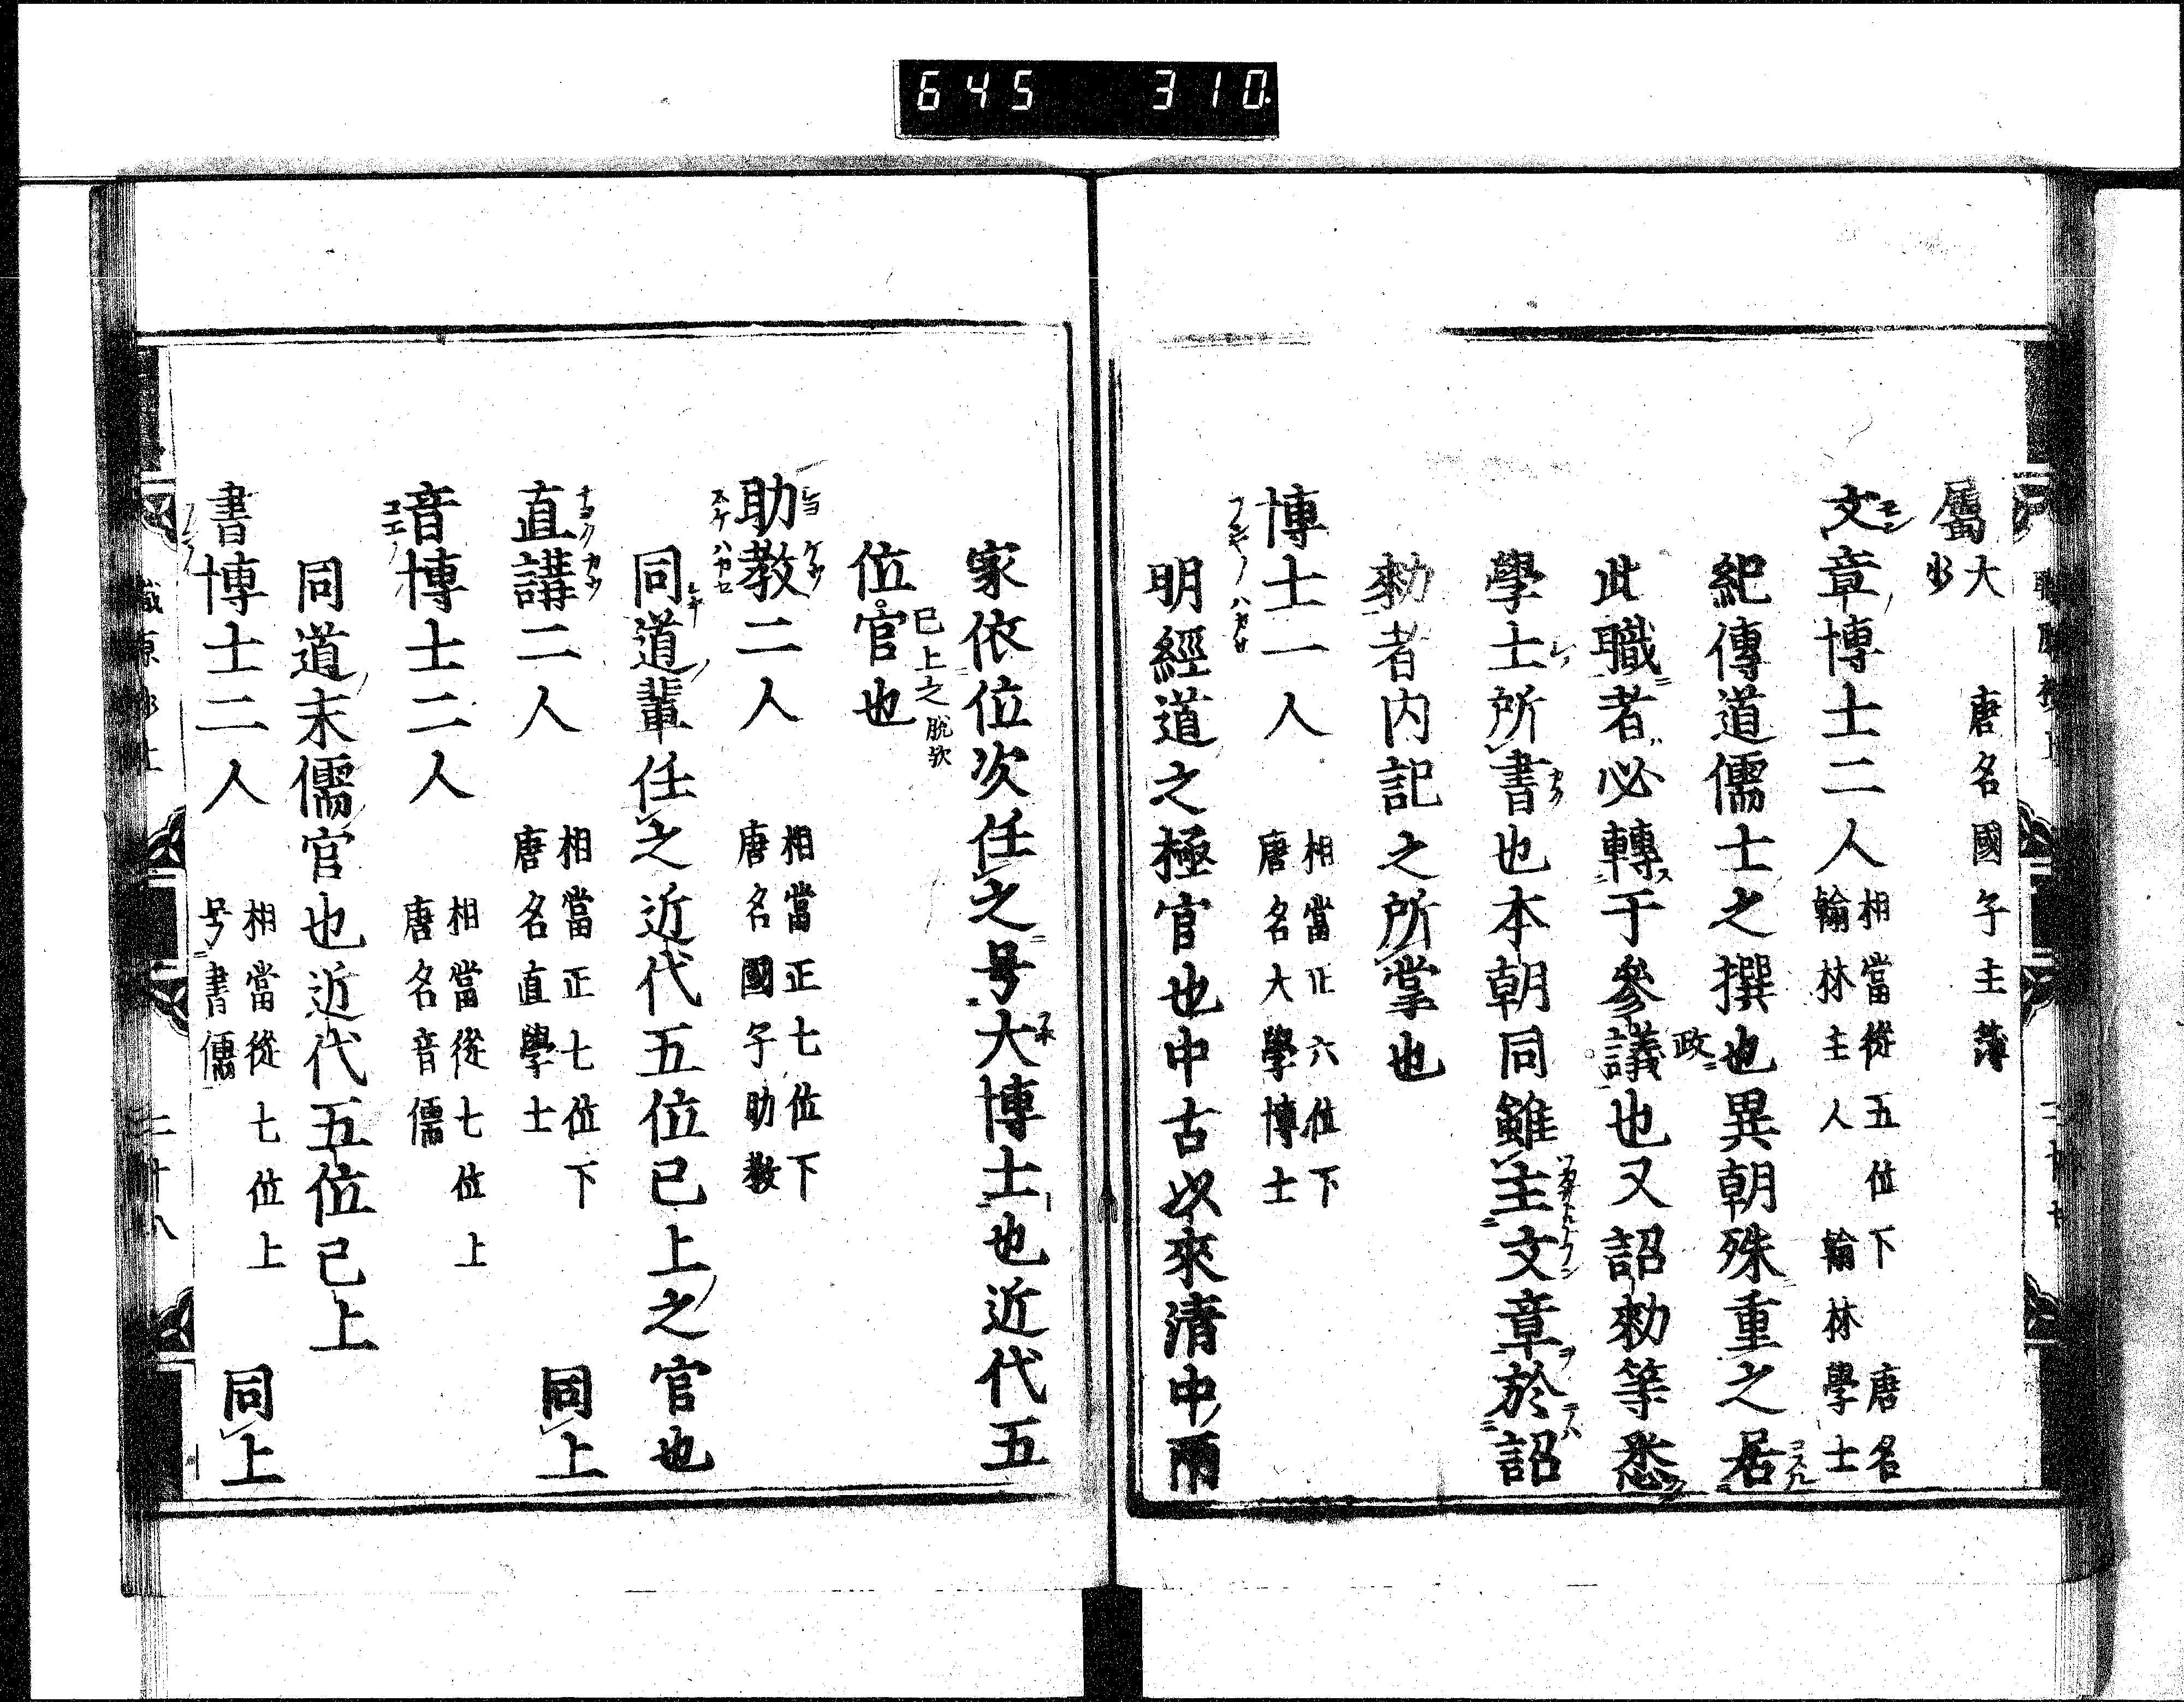 645 310
屬大 唐名國子主簿
少
文章博士二人 相當從五位下 唐名
翰林主人 翰林學士
紀傳道儒士之撰也異朝殊重之居
此職者必轉于參議也又詔勅等悉
政
學士所書也本朝同雖主文章於詔
勅者内記之所掌也
博士一人 相當正六位下
唐名大學博士
明經道之極官也中古以來清中兩
家依位次任之号大博士也近代五
位官也
已上之脱歟
助教二人 相當正七位下
唐名國子助教
同道輩任之近代五位已上之官也
直講二人 相當正七位下 同上
唐名直學士
音博士二人 相當從七位上
唐名音儒
同道末儒官也近代五位已上
書博士二人 相當從七位上 同上
号書儒
職原抄上 二十八